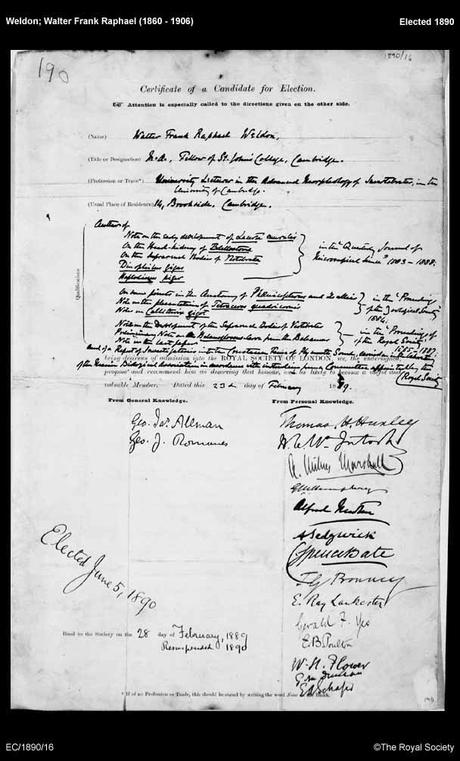 Weldon; Walter Frank Raphael (1860 - 1906)
Elected 1890
190
1890/16
Certificate of a Candidate for Election.
Attention is especially called to the directions given on the other side.
(Name) Walter Frank Raphael Weldon,
(Title or Designation) M.A., Fellow of St. John's College, Cambridge.
(Profession or Trade*) University Lecturer in the Advanced Morphology of Invertebrata, in the
University of Cambridge.
(Usual Place of Residence) 14, Brookside, Cambridge.
Qualifications
Author of
Note on the early development of Lacerta muralis
On the Head-kidney of Bdellostoma
On the Suprarenal Bodies of Vertebrata
Dinophilus gigas
Haplodiscus piger
in the "Quarterly Journal of
Microscopical Science" 1883-1888.
On some points in the Anatomy of Phoenicopterus and its allies
Note on the placentation of Tetraceros quadricornis
Note on Callithrix gigot
in the "Proceedings
of the Zoological Society
1884.
Note on the Development of the Suprarenal Bodies of Vertebrates
Preliminary Note on a Balanoglossus larva from the Bahamas
Note on the last paper
in the "Proceedings of
the Royal Society
1885, 1887.
being desirous of admission into the ROYAL SOCIETY OF LONDON, we, the undersigned,
(Royal Society
valuable Member. Dated this 23d day of February 1889.
From General Knowledge.
From Personal Knowledge.
Geo. Jas. Allman
Geo. J. Romanes
Thomas H Huxley
A. Milnes Marshall
G M Humphry
Alfred Newton
A Sedgwick
C Spence Bate
T G Bonney
E. Ray Lankester
Gerald F. Yeo
E B Poulton
W. H. Flower
E A Schäfer
Elected June 5, 1890
Read to the Society on the 28 day of February, 1889
Resuspended 1890
* If of no Profession or Trade, this should be stated by writing the word None in the blank.
EC/1890/16
©The Royal Society